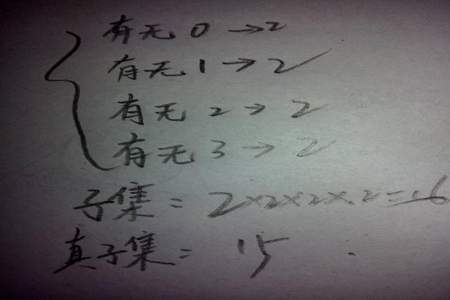 有无 0→2
有无 1→2
有无 2→2
有无 3→2
子集 = 2×2×2×2=16
真子集 = 15